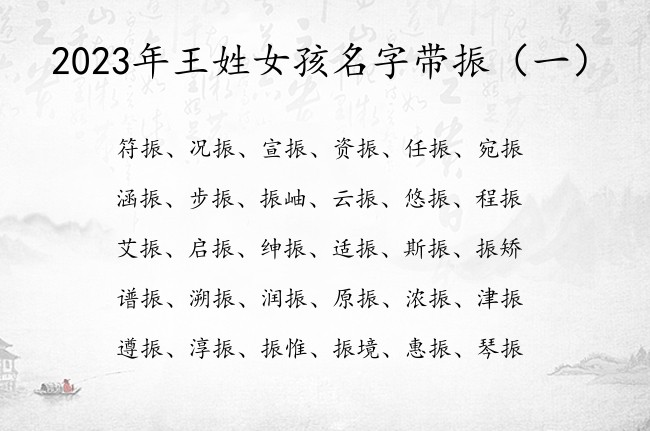 2023年王姓女孩名字带振（一）
符振、况振、宣振、资振、任振、宛振
涵振、步振、振岫、云振、悠振、程振
艾振、启振、绅振、适振、斯振、振矫
谱振、溯振、润振、原振、浓振、津振
遵振、淳振、振惟、振境、惠振、琴振